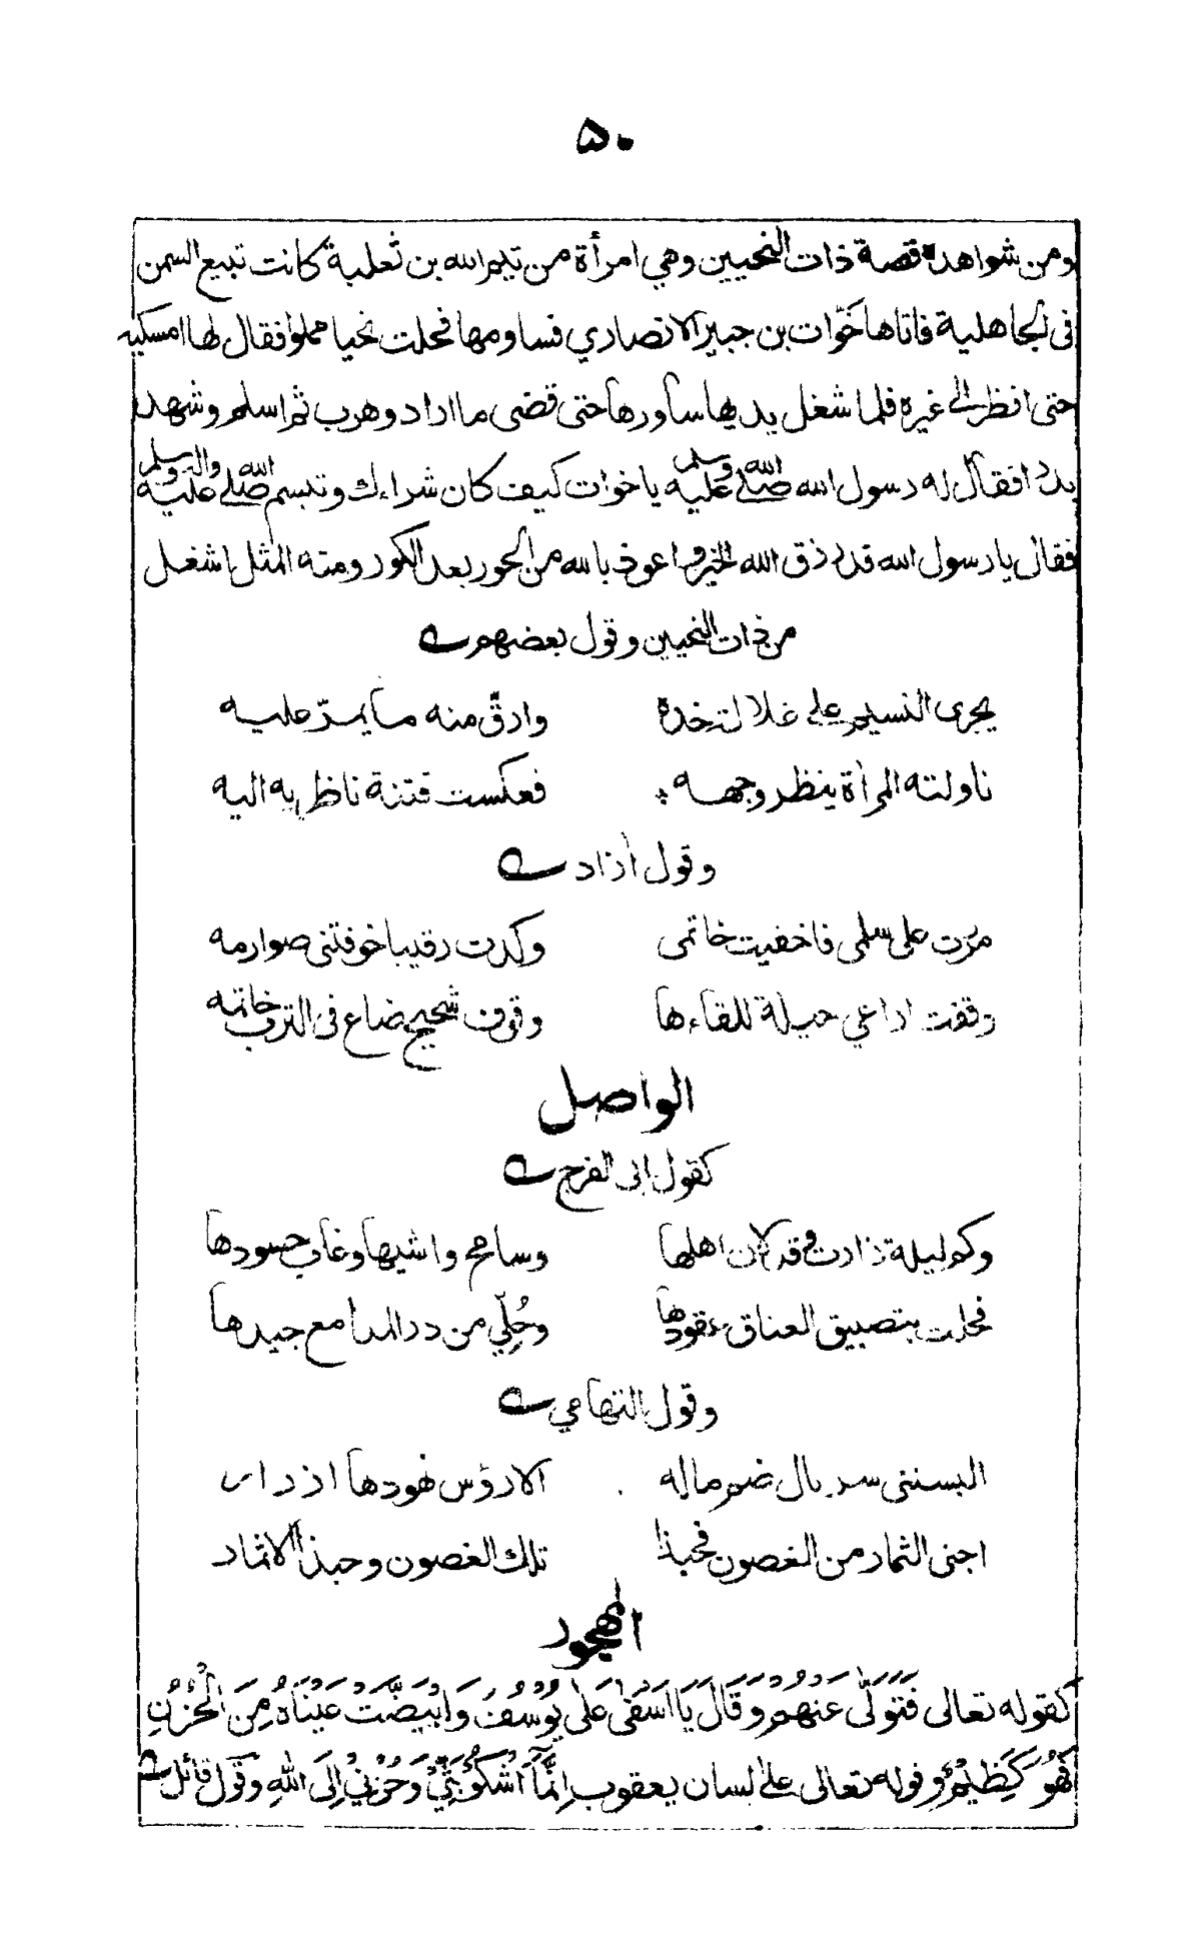 ۵۰
ومن شواهده قصة ذات النحيين وهي امرأة من تيم الله بن ثعلبة كانت تبيع السمن
فى الجاهلية فاتاها خوّات بن جبير الانصاري فساومها فحلت نحيا مملوا فقال لها امسكيه
حتى انظر الى غيره فلما شغل يديها ساورها حتى قضى ما اراد وهرب ثم اسلم وشهد
بدرا فقال له رسول الله صلى الله عليه وسلم يا خوات كيف كان شراءك وتبسم صلى الله عليه واله وسلم
فقال يا رسول الله قد رزق الله الخير واعوذ بالله من الحور بعد الكور ومنه المثل اشغل
من ذات النحيين وقول بعضهم
يجرى النسيم على غلالة خده وارقّ منه ما يمرّ عليه
ناولته المرأة ينظر وجهه فعكست فتنة ناظريه اليه
وقول أزاد
مررت على سلمى فاخفيت خاتمى وكدت رقيبا خوفتنى صوارمه
وقفت اراعي حيلة للقاءها وقوف شحيح ضاع فى الترب خاتمه
الواصل
كقول ابى الفرج
وكم ليلة زارت وقد لان اهلها وسامح واشيها وغاب حسودها
فحلت بتضييق العناق عقودها وحُلِّي من در المدامع جيدها
وقول التهامي
البسننى سربال ضم ماله الا رؤس نهودها ازرار
اجنى الثمار من الغصون فحبذا تلك الغصون وحبذا الاثمار
المهجور
كقوله تعالى فَتَوَلَّى عَنْهُمْ وَقَالَ يَا اَسَفٰى عَلٰى يُوْسُفَ وَابْيَضَّتْ عَيْنَاهُ مِنَ الْحُزْنِ
فَهُوَ كَظِيْمٌ وقوله تعالى على لسان يعقوب اِنَّمَا اَشْكُوْ بَثِّيْ وَحُزْنِيْ اِلَى اللهِ وقول قائل